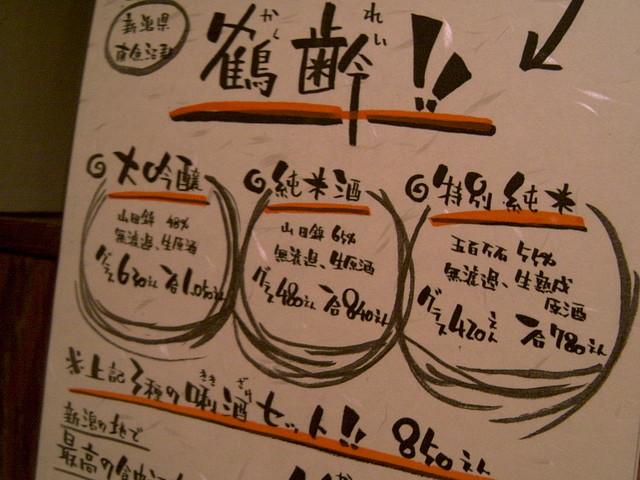 新潟県
南魚沼市
かく れい
鶴齢!!
大吟醸
山田錦 48%
無濾過、生原酒
グラス630えん 一合1,050えん
純米酒
山田錦 65%
無濾過、生原酒
グラス480えん 一合840えん
特別純米
五百万石 55%
無濾過、生熟成
原酒
グラス420えん 一合780えん
※上記3種の唎酒セット!! 850えん
きき ざけ
新潟の地で
最高の